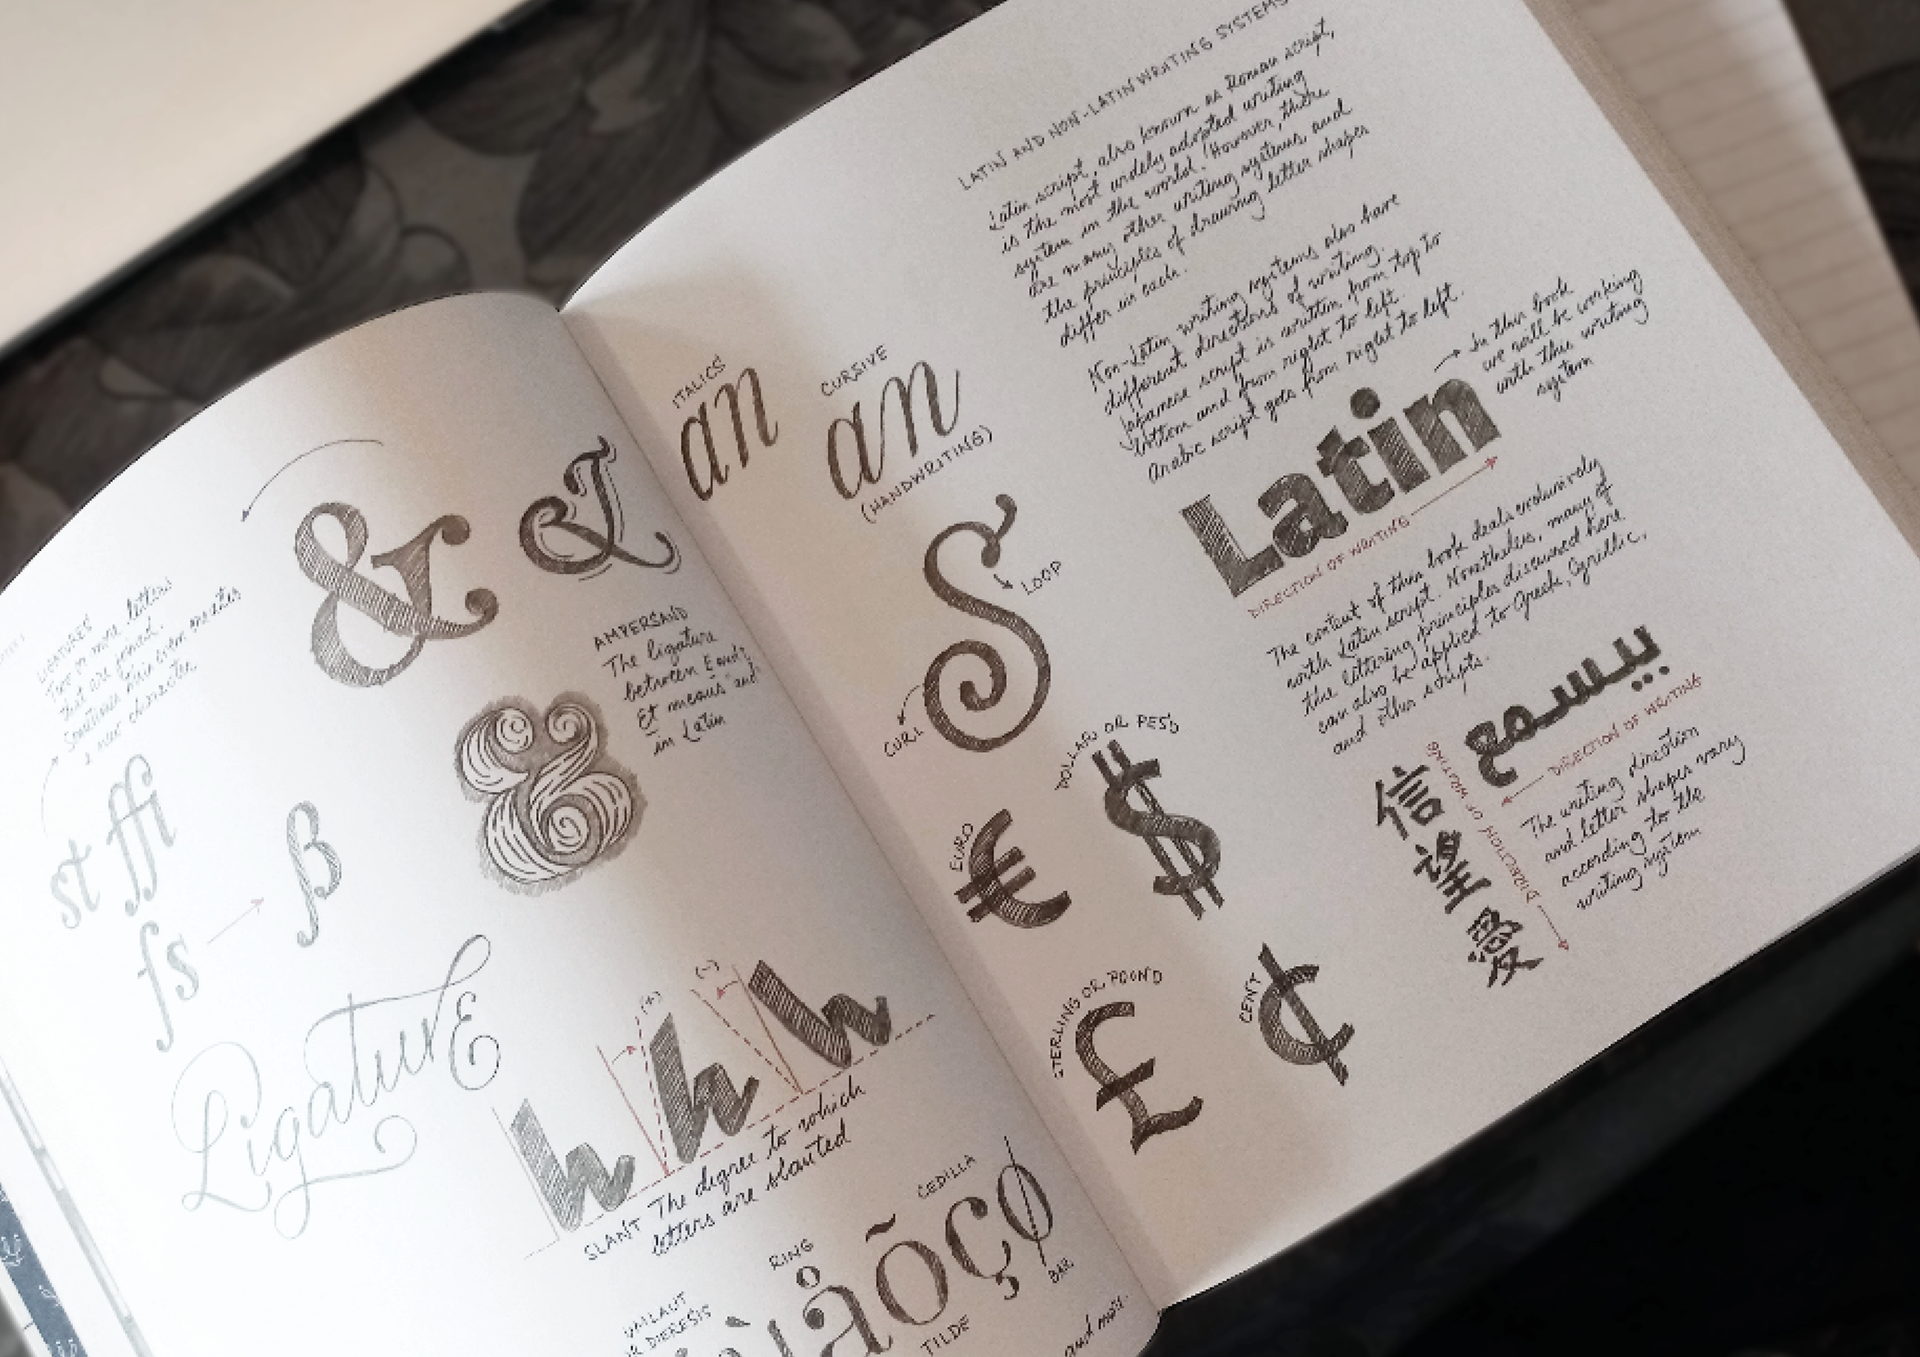 LIGATURES
Two or more letters
that are joined.
Sometimes this even creates
a new character.
&
&
&
AMPERSAND
The ligature
between E and t
Et means "and"
in Latin
st ffi
fs
ß
Ligature
h h h
(+)
(-)
SLANT The degree to which
letters are slanted
UMLAUT
OR DIERESIS
RING
TILDE
CEDILLA
BAR
å õ ç ø
and more.
ITALICS
an
CURSIVE
an
(HANDWRITING)
S
LOOP
CURL
DOLLAR OR PESO
$
EURO
€
STERLING OR POUND
£
CENT
¢
LATIN AND NON-LATIN WRITING SYSTEMS
Latin script, also known as Roman script,
is the most widely adopted writing
system in the world. However, there
are many other writing systems, and
the principles of drawing letter shapes
differ in each.
Non-Latin writing systems also have
different directions of writing.
Japanese script is written from top to
bottom and from right to left.
Arabic script goes from right to left.
Latin
In this book
we will be working
with this writing
system
DIRECTION OF WRITING
The content of this book deals exclusively
with Latin script. Nonetheless, many of
the lettering principles discussed here
can also be applied to Greek, Cyrillic,
and other scripts.
DIRECTION OF WRITING
信
望
愛
DIRECTION OF WRITING
The writing direction
and letter shapes vary
according to the
writing system